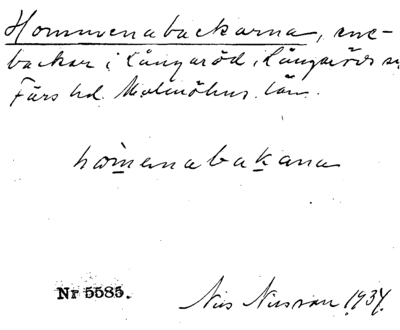 Hommenabackarna, ene-
backar i Långaröd, Långaröds sn,
Färs hd. Malmöhus län.
homenabakana
Nr 5585.
Nils Nilsson 1934.